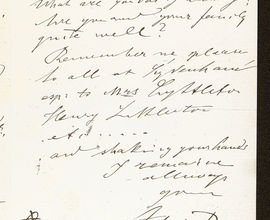 What are you
Are you and your family
quite well?
Remember me please
to all at Sydenham
esp: to Mrs Lyttleton
Henry Littleton
etc......
and shaking your hands
I remain
allways
your